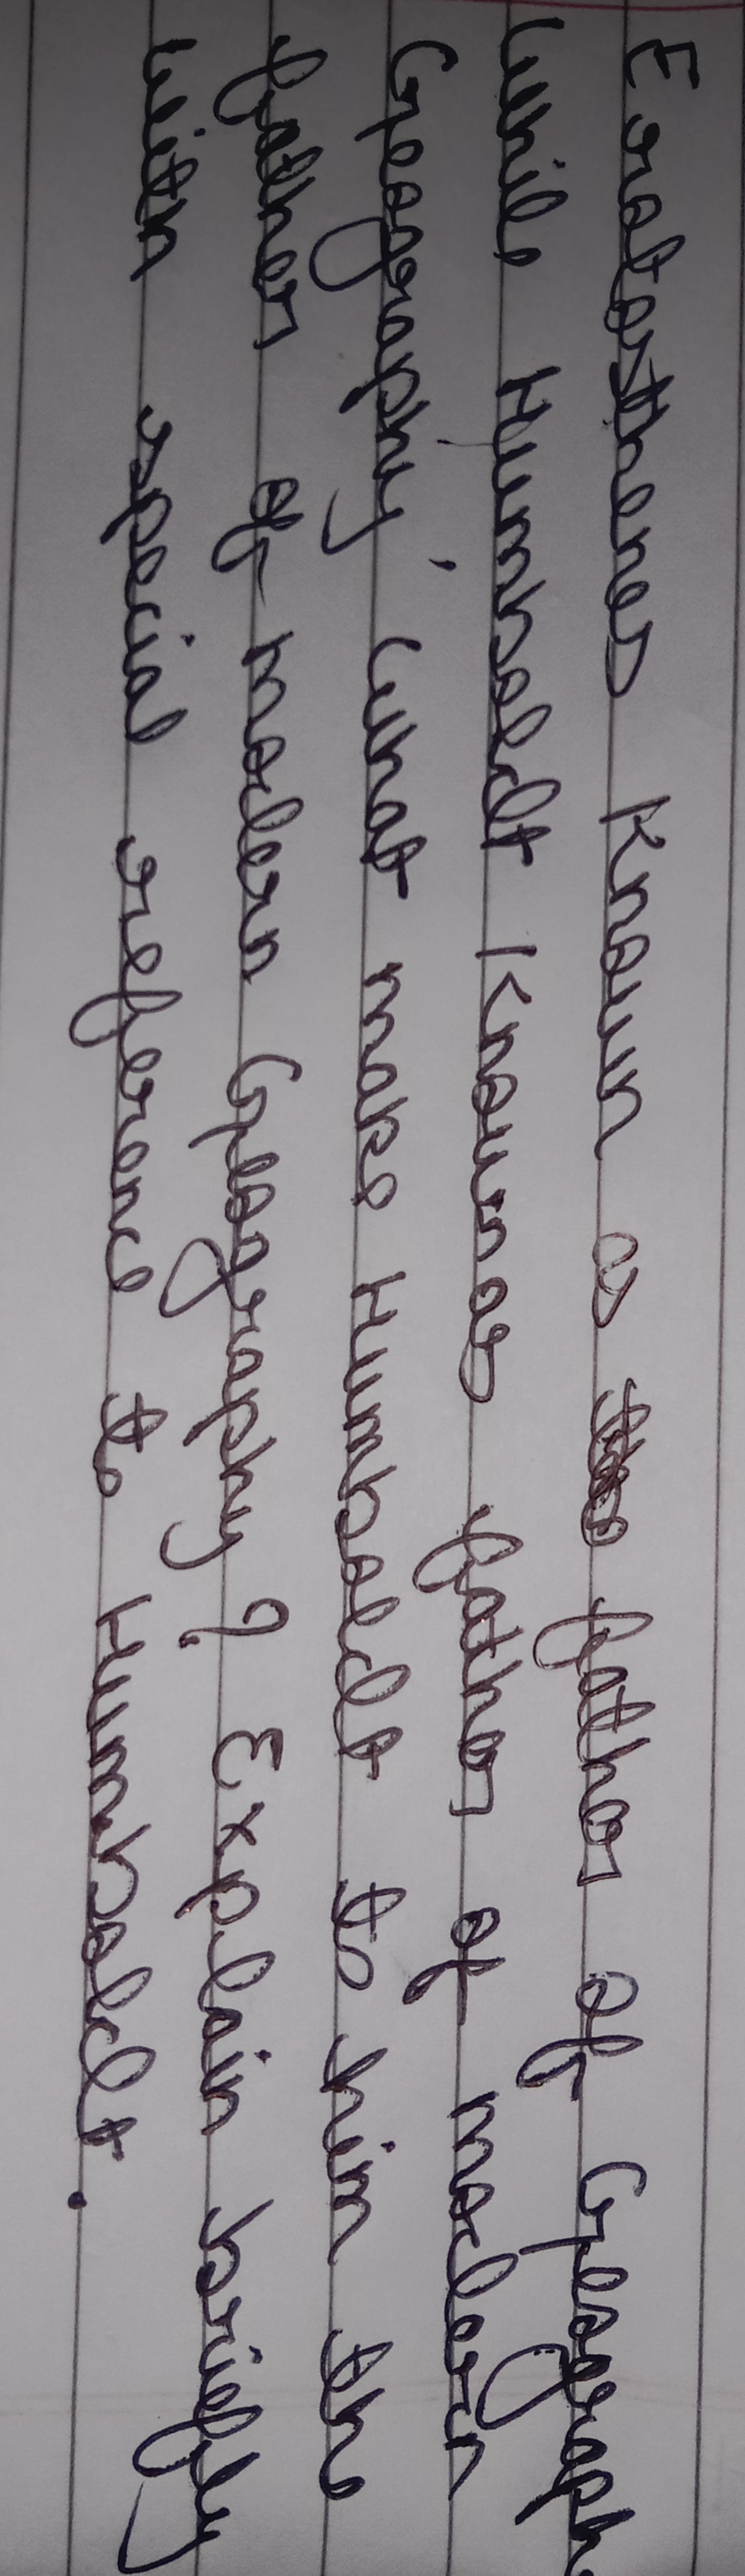 Eratosthenes Known as father of Geograph
while Humboldt Known as father of modern
Geography. What make Humboldt to him the
father of modern Geography? Explain briefly
with special reference to Humboldt.